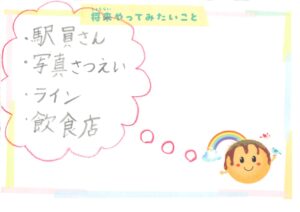 将来やってみたいこと
・駅員さん
・写真さつえい
・ライン
・飲食店